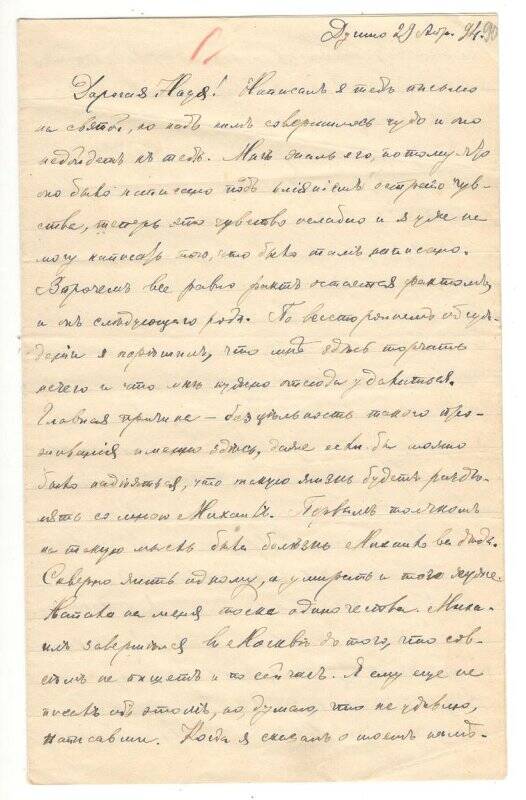 29 Апр. 94.
Дорогая Надя! Написалъ я тебѣ письмо
на святой, но надъ нимъ совершилось чудо и оно
не дойдетъ къ тебѣ. Мнѣ жаль его, потому что
оно было написано подъ вліяніемъ остраго чув-
ства, теперь это чувство ослабло и я уже не
могу написать того, что было тамъ написано.
Впрочемъ все равно фактъ остается фактомъ,
и онъ слѣдующаго рода. По всестороннемъ обсуж-
деніи я порѣшилъ, что мнѣ здѣсь торчать
нечего и что мнѣ нужно отсюда удалиться.
Главная причина — безцѣльность такого про-
живанія именно здѣсь, даже если бы можно
было надѣяться, что такую жизнь будетъ раздѣ-
лять со мною Михаилъ. Первымъ толчкомъ
на такую мысль была болѣзнь
Скверно жить одному, а умирать и того хуже.
Напала на меня тоска одиночества. Миха-
илъ завертѣлся въ Москвѣ до того, что сов-
сѣмъ не пишетъ и по сейчасъ. Я ему еще не
писалъ объ этомъ, но думаю, что не удивлю,
написавши. Когда я сказалъ о моемъ намѣ-